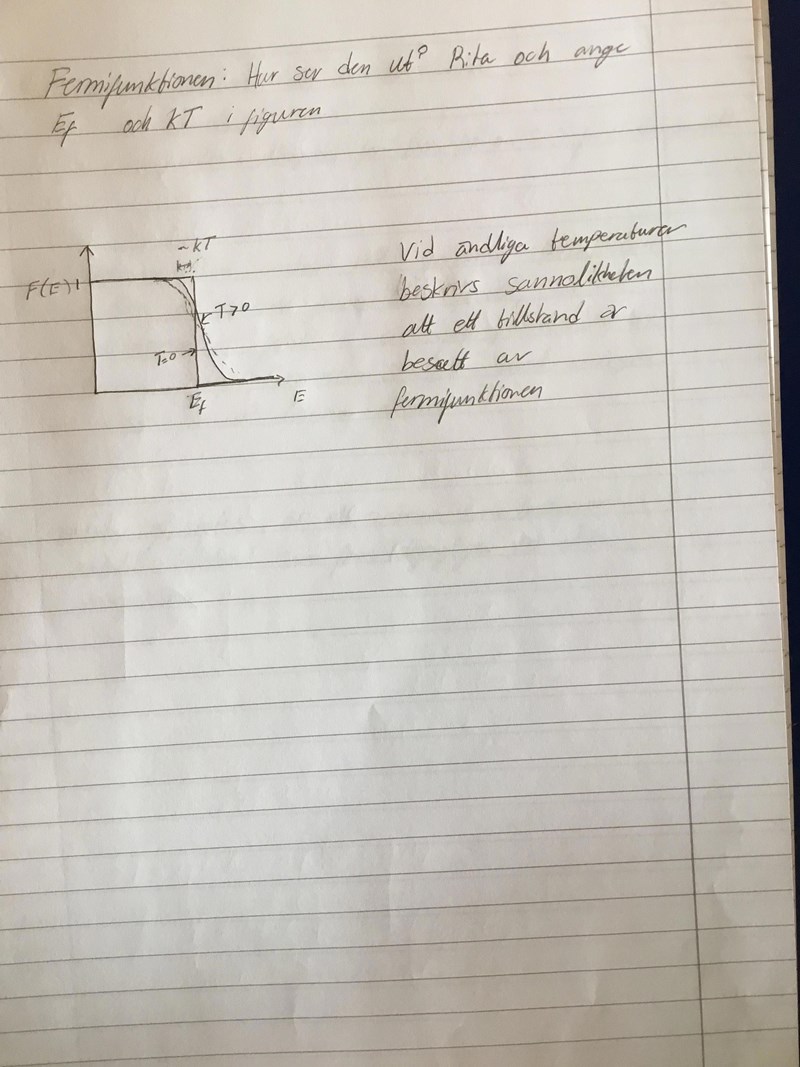 Fermifunktionen: Hur ser den ut? Rita och ange
Ef och kT i figuren
~kT
F(E) 1
T>0
T=0
Ef
E
Vid ändliga temperaturer
beskrivs sannolikheten
att ett tillstånd är
besatt av
fermifunktionen